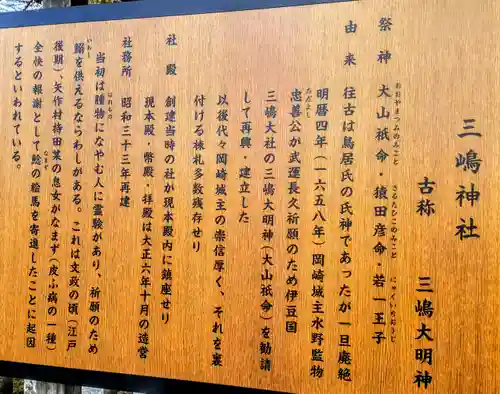 三嶋神社
古称　三嶋大明神
祭神　大山祇命・猿田彦命・若一王子
おおやまつみのみこと　さるたひこのみこと　にゃくいちおうじ
由来　往古は鳥居氏の氏神であったが一旦廃絶
明暦四年（一六五八年）岡崎城主水野監物
忠善公が武運長久祈願のため伊豆国
ただよし
三嶋大社の三嶋大明神（大山祇命）を勧請
して再興・建立した
以後代々岡崎城主の崇信厚く、それを裏
付ける棟札多数残存せり
社殿　創建当時の社が現本殿内に鎮座せり
現本殿・幣殿・拝殿は大正六年十月の造営
社務所　昭和三十三年再建
当初は腫物になやむ人に霊験があり、祈願のため
はれもの
鰯を供えるならわしがある。これは文政の頃（江戸
いわし
後期）、矢作村待田某の息女がなまず（皮ふ病の一種）
全快の報謝として鯰の絵馬を寄進したことに起因
なまず
するといわれている。